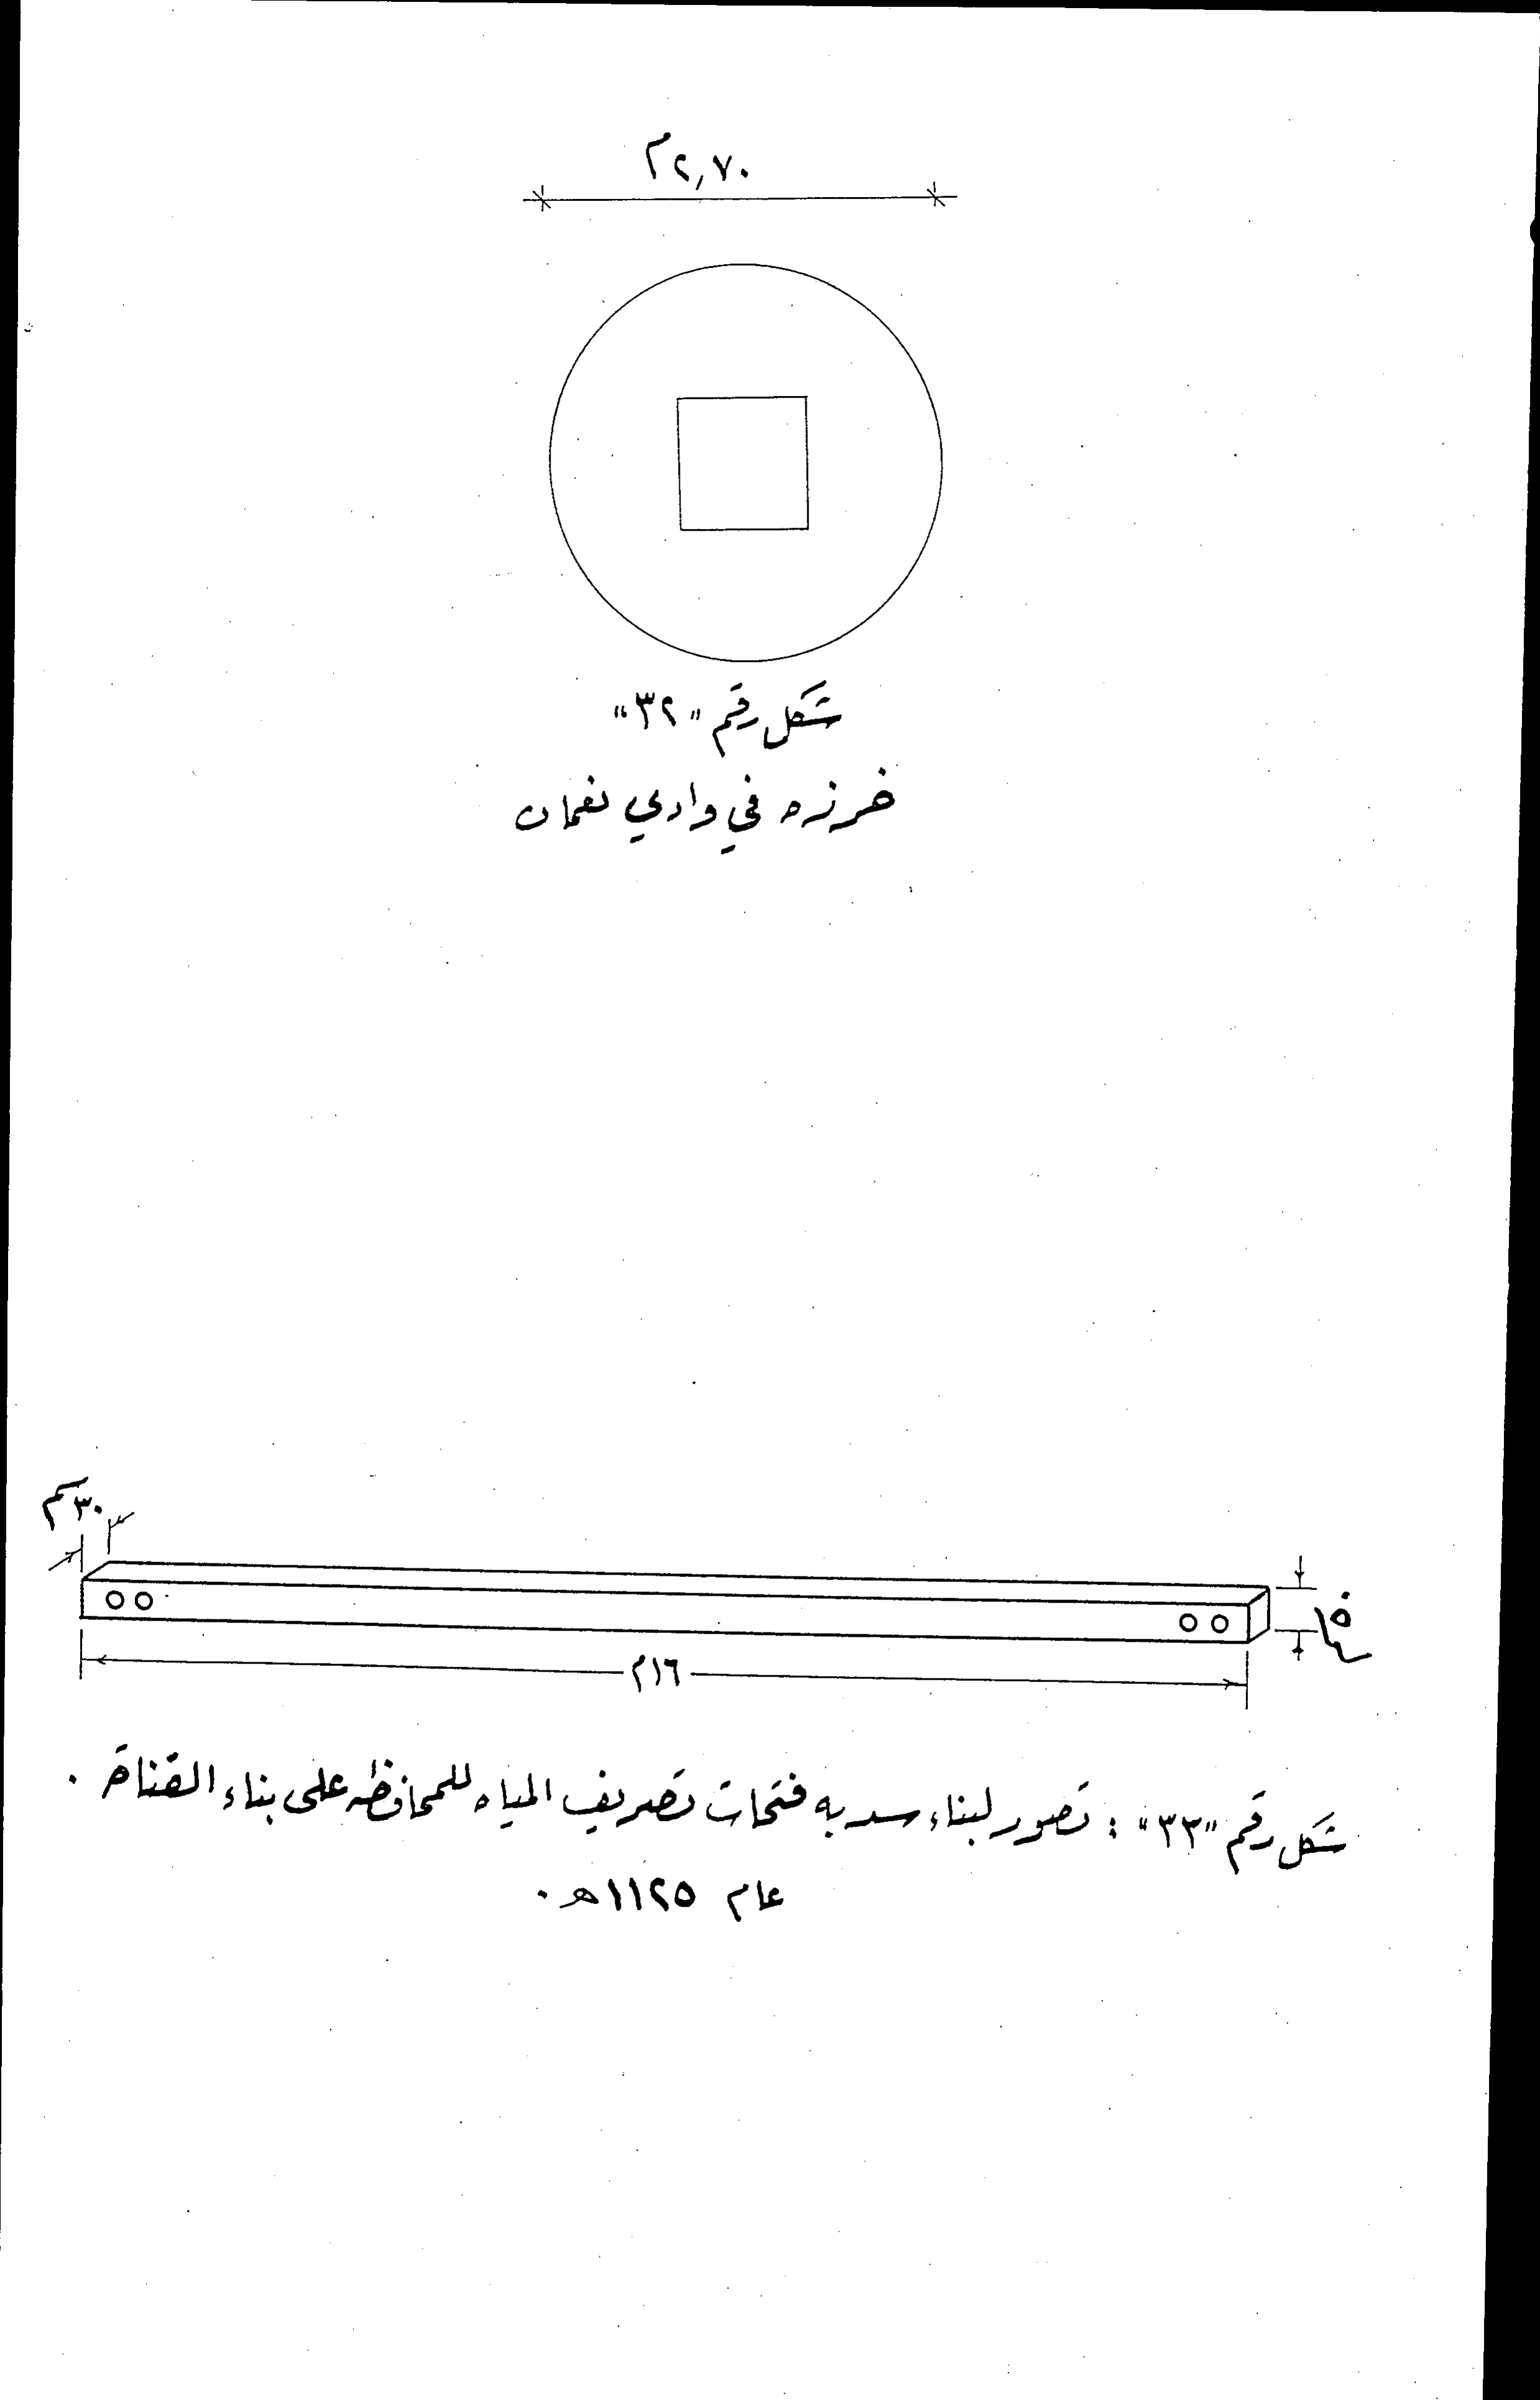 ٢,٧٠م
شكل رقم "٣٢"
خرزه في وادي نعمان
٣٠سم
١٦م
شكل رقم "٣٣" : تصور لبناء سد به فتحات تصريف المياه للمحافظه على بناء القناة .
عام ١١٢٥هـ .